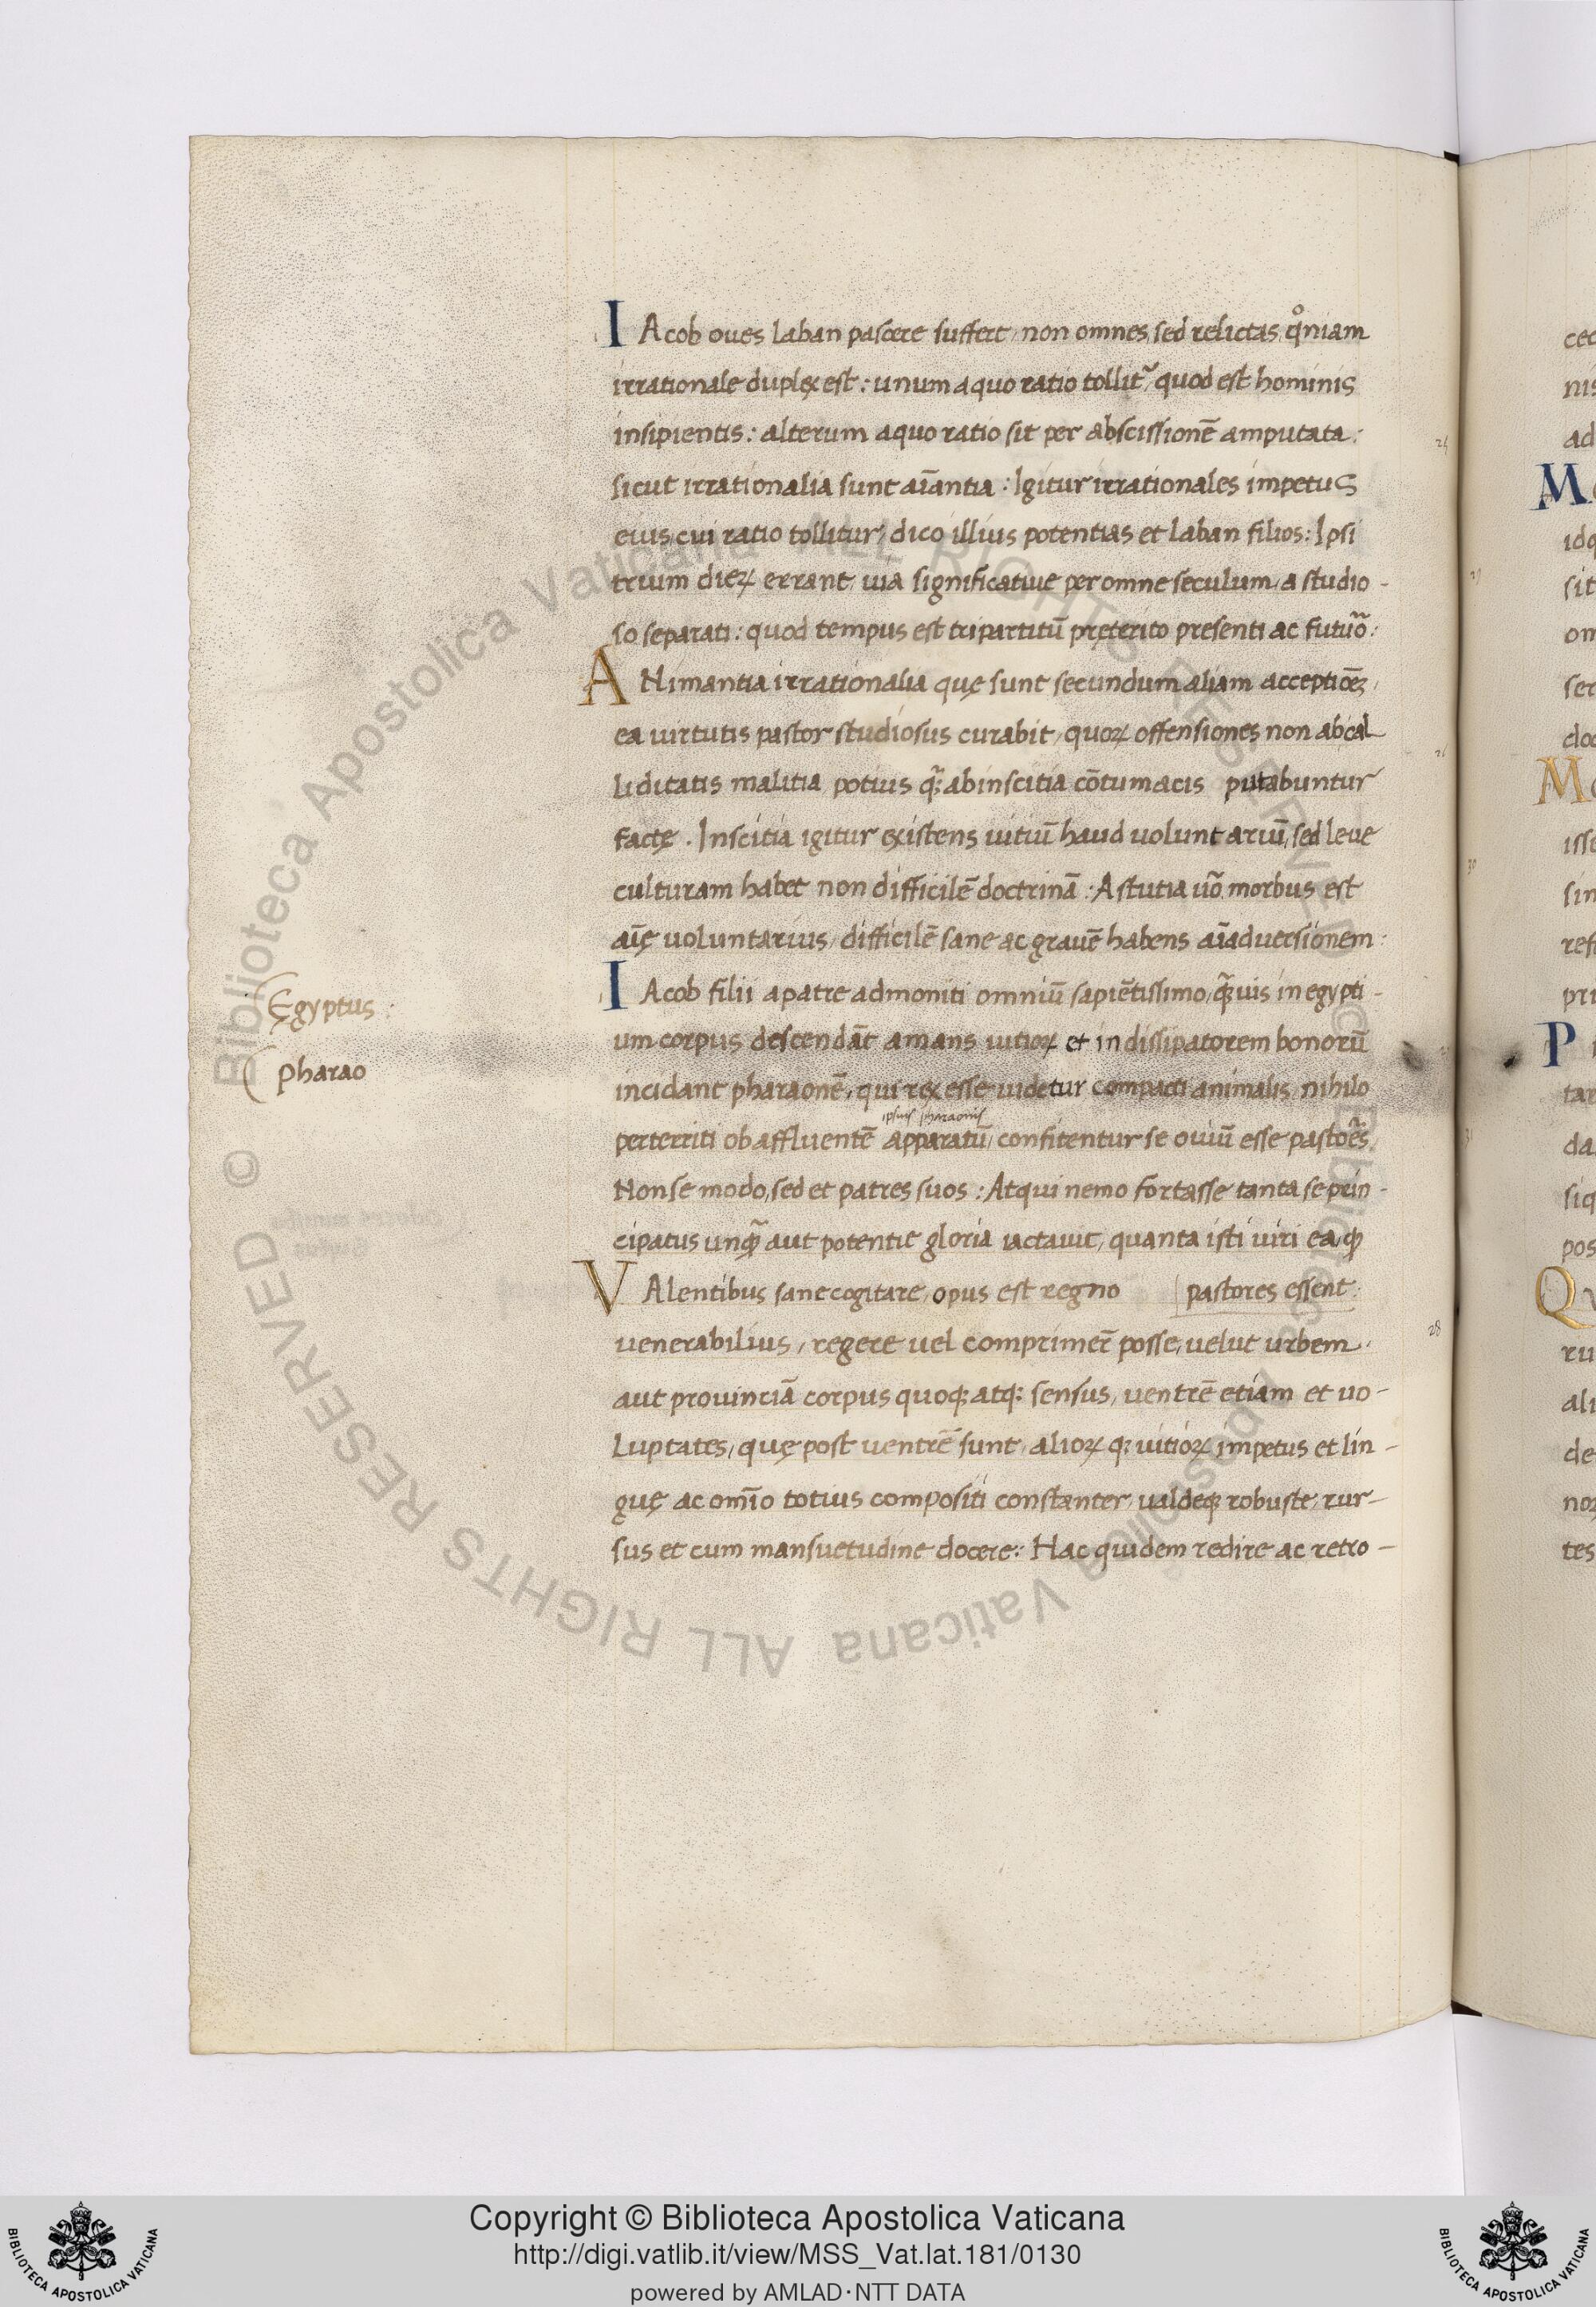 IAcob oues laban pascere suffert, non omnes, sed relictas, qͦniam
irrationale duplex est: unum a quo ratio tollit᷑, quod est hominis
insipientis: alterum a quo ratio sit per abscissionē amputata:
sicut irrationalia sunt aīantia: Igitur irrationales impetus
eius, cui ratio tollitur, dico illius potentias et laban filios: Ipsi
trium dieꝝ errant uia significatiue per omne seculum, a studio-
so separati: quod tempus est tripartitū pręterito presenti ac futuo᷑:
ANimantia irrationalia quę sunt secundum aliam
ea uirtutis pastor studiosus curabit, quoꝝ offensiones non ab cal
liditatis malitia potius qᷓ; ab inscitia cōtumacis putabuntur
factę. Inscitia igitur existens uitiū haud uoluntariū, sed leue
culturam habet non difficilē doctrinā: Astutia uō morbus est
aīę uoluntarius, difficilē sane ac grauē habens aīaduersionem:
IAcob filii a patre admoniti omniū sapiētissimo, qᷓuis in egypti-
Ęgyptus:
um corpus descendāt amans uitioꝝ et in dissipatorem bonorū
Pharao
incidant pharaonē, qui rex esse uidetur compacti animalis nihilo
ipsius pharaonis
perterriti ob affluentē apparatū, confitentur se ouiū esse pastoe᷑s
Non se modo, sed et patres suos: Atqui nemo fortasse tanta se prin-
cipatus unqᷓ aut potentie gloria iactauit, quanta isti uiri ea, ꝙ
VAlentibus sane cogitare, opus est regno pastores essent:
uenerabilius, regere uel comprimer̄ posse, uelut urbem
aut prouinciā corpus quoq; atq; sensus, uentrē etiam et uo-
luptates, quę post uentrē sunt, alioꝝ q; uitioꝝ impetus et lin-
guę ac omīo totius compositi constanter, ualdeq; robuste, rur-
sus et cum mansuetudine docere: Hac quidem redire ac retro-
26
28
Copyright © Biblioteca Apostolica Vaticana
http://digi.vatlib.it/view/MSS_Vat.lat.181/0130
powered by AMLAD·NTT DATA